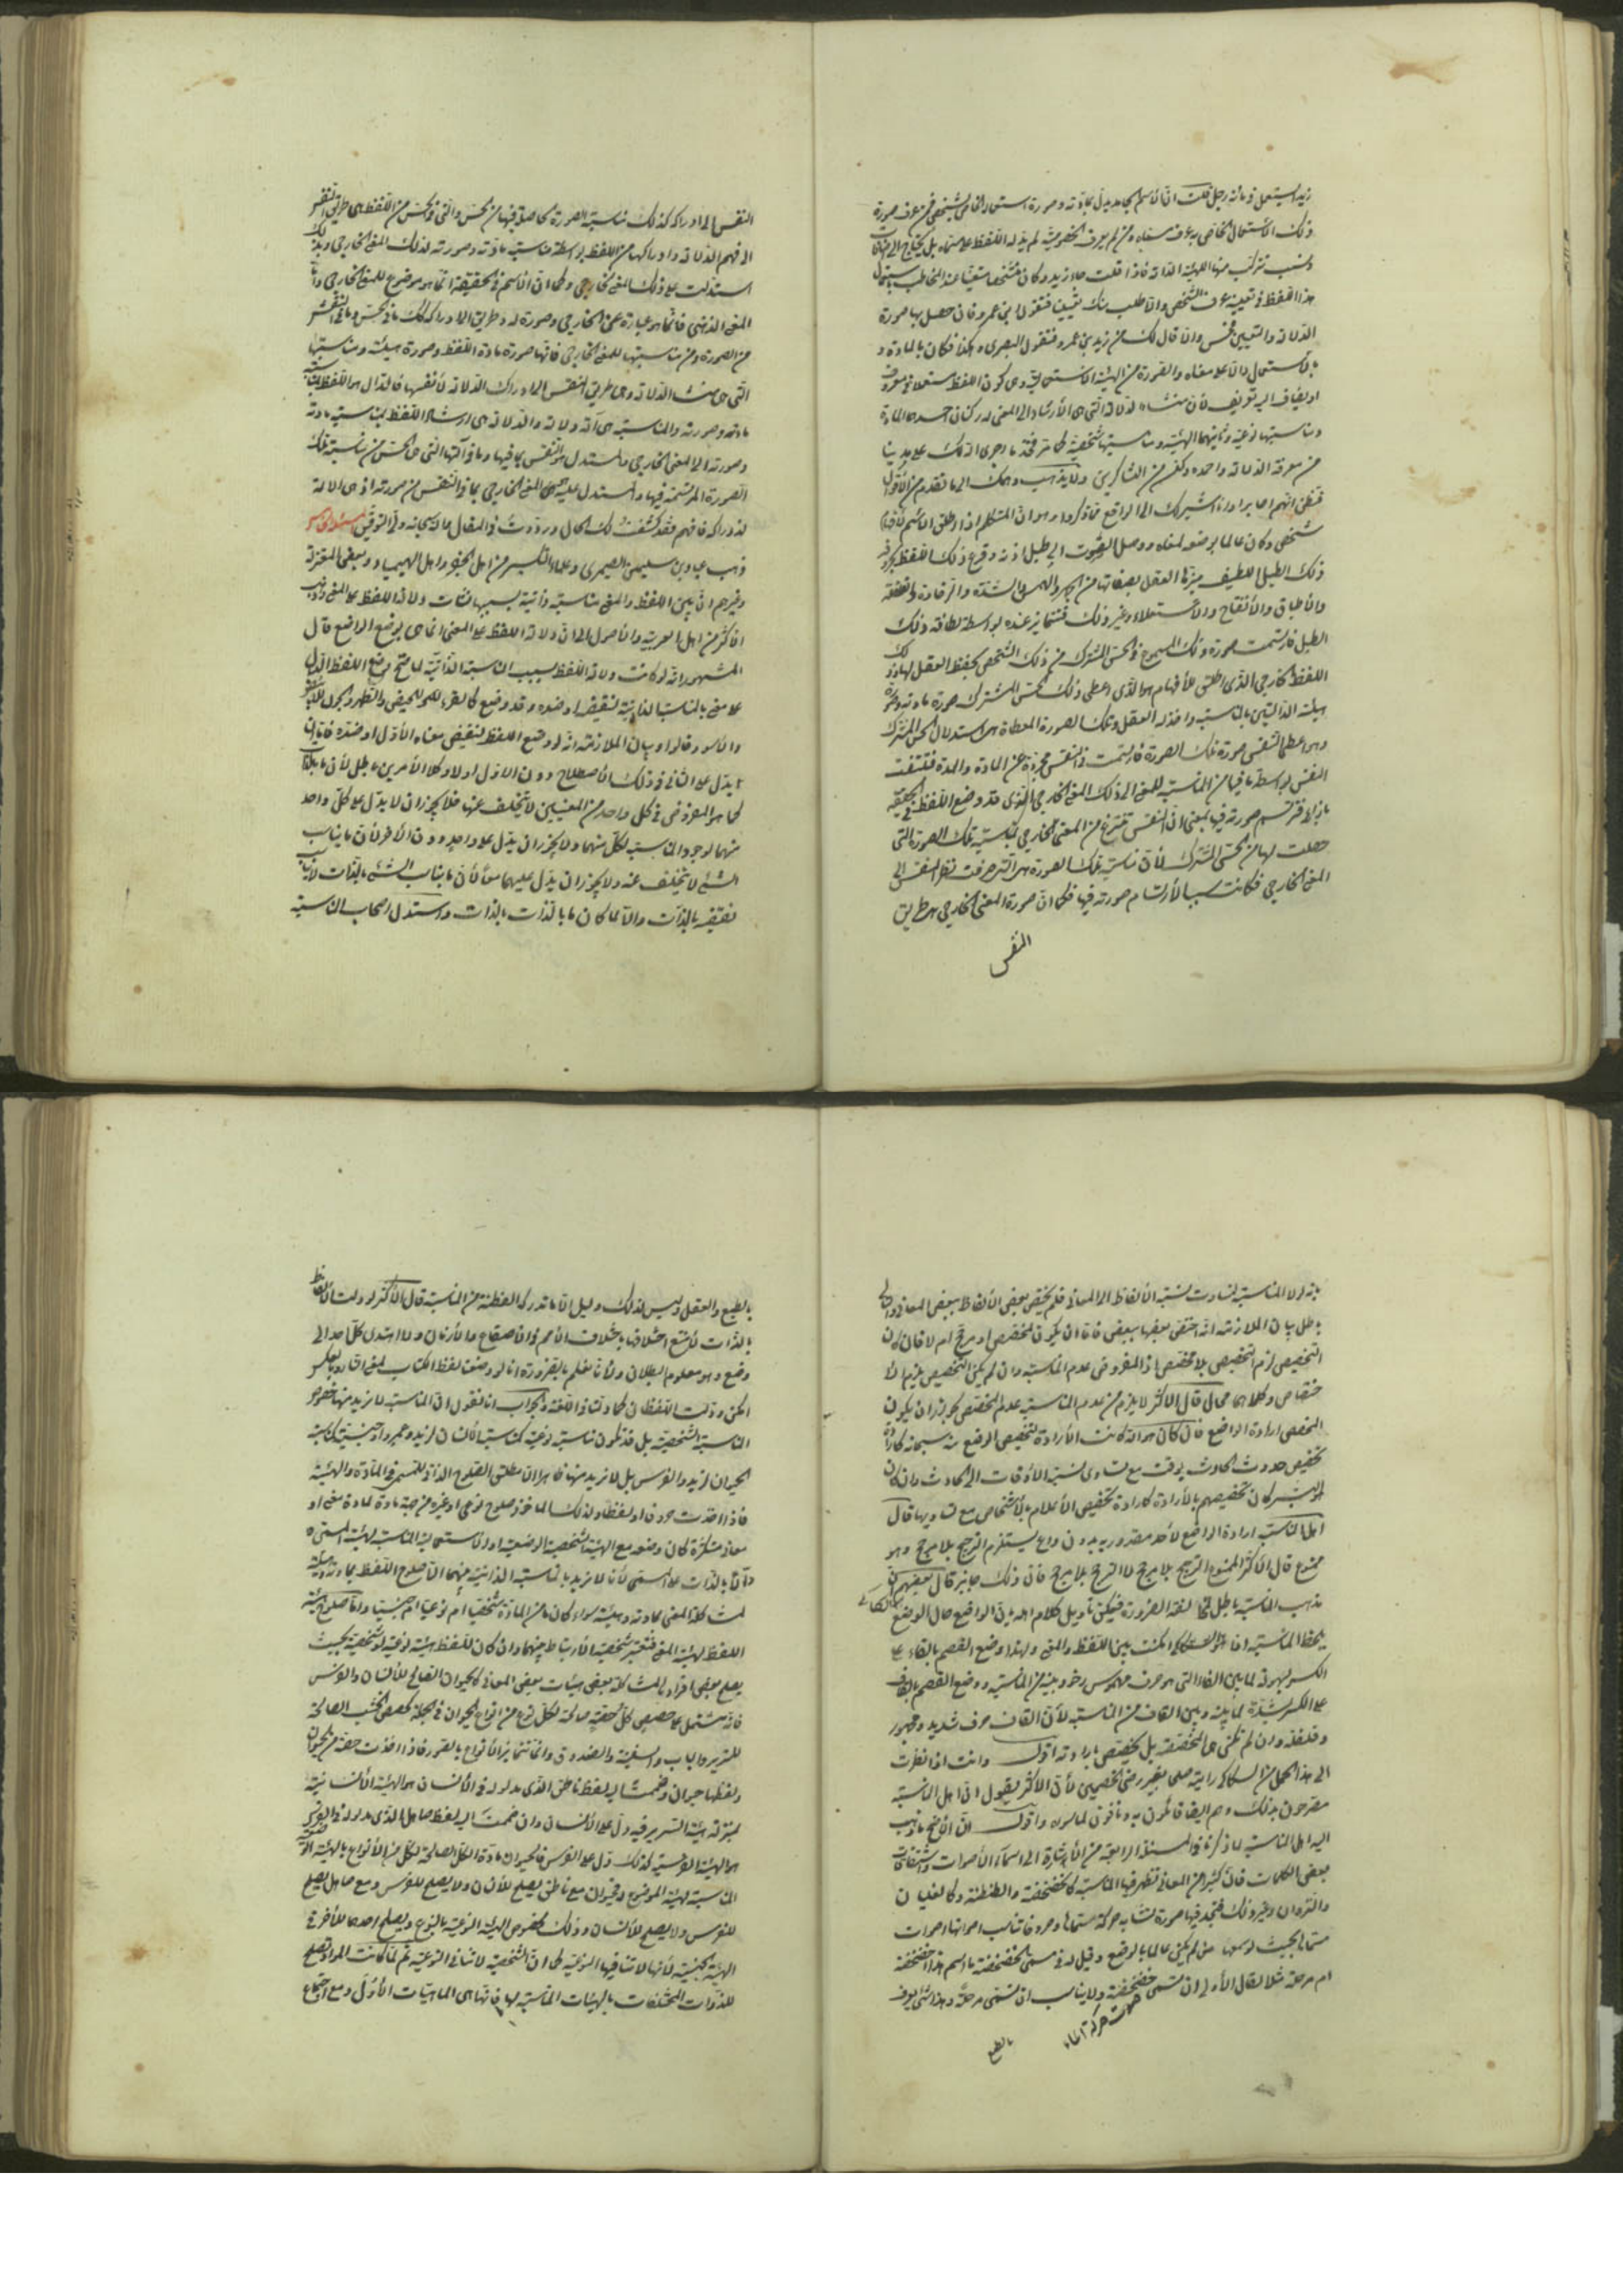 زيد استعمل في مائة رجل قلت انّ الاسم الجامد يدلّ بمادّته وصورة استعماله الخاصّ لشخص فمن عرف صورة
ذلك الاستعمال الخاصّ عرف مسمّاه ومن لم يعرف الخصوصيّة لم يدلّه اللفظ على مسمّاه بل يحتاج الى
ونسب تتركّب منها الهيئة الدالّة فاذا قلت جاء زيد وكان متشخّصا متعيّنا عند المخاطب
هذا اللفظ في تعيينه عرف الشخص والّا طلب منك تعيينه فتقول ابن عمرو فان حصل بها صورة
الدلالة والتعيين فحسن والّا قال لك من زيد بن عمرو فتقول البصري وهكذا فكان بالمادة و
بالاستعمال دالّا على معناه والصورة من الهيئة الاستعماليّة وهي كون اللفظ مستعملا في معروف
او يضاف اليه تعريف لأنّ منشاء الدلالة الّتي هي الأرشاد الى المعنى له ركنان احدهما المادة
ومناسبتها نوعيّة وثانيهما الهيئة ومناسبتها شخصيّة كما مرّ فخذ ما اجرى المالك على يدينا
من معرفة الدلالة واحمده وكن من الشاكرين ولا يذهب وهمك الى ما تقدم من الأقوال
فتظنّ انّهم اصابوا واشيرك الى الواقع ممّا ذكروا وهو انّ المتكلم اذا اطلق الاسم
شخص وكان عالما بوضعه لمعناه ووصل الصّوت الى طبل اذنه وقرع ذلك اللفظ
ذلك الطبل اللطيف ميّزها العقل بصفاتها من الجهر والهمس والشدّة والرخاوة والقلقلة
والأطباق والأنفتاح والأستعلاء وغير ذلك فتتمايز عنده بواسطة لطافة ذلك
الطبل فارتسمت صورة ذلك المسموع في الحسّ المشترك من ذلك الشخص بحفظ العقل لها
اللفظ الخارجي الذي اطلق للأفهام هو الّذي اعطى ذلك الحسّ المشترك صورة مادّته وصورة
هيئته الدالتين بالمناسبة واخذ له العقل وتلك الصورة المعطاة هي استدلال الحسّ المشترك
وهو اعطى النّفس صورة تلك الصورة فارتسمت في النفس مجرّدة عن المادة والمدة فتلتفت
النفس بواسطة ما فيها من المناسبة للمعنى الى ذلك المعنى الخارجي الّذي قد وضع اللفظ في الحقيقة
بازائه فترتسم صورته فيها بمعنى انّ النّفس تنتزع من المعنى الخارجي بمناسبة تلك الصورة التي
حصلت لها من الحسّ المشترك لأنّ مناسبة تلك الصورة هي التي صرفت نظر النفس الى
المعنى الخارجي فكانت سببا لأرتسام صورته فيها فكما انّ صورة المعنى الخارجي هي طريق
النفس
النفس الى ادراكه كذلك مناسبة الصورة الحاصلة فيها من الحسّ والّتي في الحسّ من اللفظ هي طريق النفس
الى فهم الدلالة وادراكها من اللفظ بواسطة مناسبة مادّته وصورته لذلك المعنى الخارجي وبذلك
استدلت على ذلك المعنى الخارجي وكما انّ الاسم في الحقيقة انّما هو موضوع للمعنى الخارجي وانّ
المعنى الذهنيّ فانّما هو عبارة عن الخارجي وصورة له وطريق الى ادراكه كذلك ما في الحسّ وما في النفس
من الصورة ومن مناسبتها للمعنى الخارجي فانّها صورة مادة اللفظ وصورة هيئته ومناسبتها
الّتي هي منشأ الدلالة وهي طريق النفس الى ادراك الدلالة لأنفسها فالدال هو اللفظ بمناسبة
مادته وصورته والمناسبة هي آلة دلالته والدلالة هي ارشاد اللفظ بمناسبة مادته
وصورته الى المعنى الخارجي والمستدل هو النّفس بما فيها وما في آلتها الّتي هي الحسّ من مناسبة تلك
الصّورة المرتسمة فيها والمستدل عليه هو المعنى الخارجي بما في النّفس من صورته اذ هي الآلة
لادراكه فافهم فقد كشفت لك الحال ورددت في المقال والله سبحانه وليّ التوفيق
ذهب عباد بن سليمان الصيمري وعلماء التكسير من اهل الجفر واهل الهيمياء وبعض المعتزلة
وغيرهم انّ بين اللفظ والمعنى مناسبة ذاتية بسببها نشأت دلالة اللفظ على المعنى وذهب
الأكثر من اهل العربية والأصول الى انّ دلالة اللفظ على المعنى انما هي بوضع الواضع قال
المشهور انّه لو كانت دلالة اللفظ بسبب المناسبة الذاتيّة لما صحّ وضع اللفظ الدال
على معنى بالمناسبة الذاتيّة لنقيضه او ضده وقد وضع كالقرء للحيض والطهر والجون للأبيض
والأسود قالوا وبيان الملازمة انّه لو وضع اللفظ لنقيض معناه الأوّل او ضدّه فامّا ان
يدلّ على الثاني في ذلك الأصطلاح دون الاوّل او لا وكلا الأمرين باطل لأنّ ما بالذات
كما هو المفروض في كل واحد من المعنيين لا يتخلف عنها فلا يجوز ان لا يدلّ على كلّ واحد
منهما لوجود المناسبة لكلّ منهما ولا يجوز ان يدلّ على واحد دون الآخر لأنّ ما يناسب
الشيء لا يتخلّف عنه ولا يجوز ان يدلّ عليهما معًا لأنّ ما يناسب الشيء بالذات لا يناسب
نقيضه بالذات والّا لما كان ما بالذّات بالذات واستدل اصحاب المناسبة
بانّه لولا المناسبة لتساوت نسبة الألفاظ الى المعاني فلم يختصّ بعض الألفاظ ببعض المعاني والتالي
باطل بيان الملازمة انّه اختصّ بعضها ببعض فامّا ان يكون لمخصّص او مرجّح ام لا فان كان
التخصيص لزم التخصيص بلا مخصّص اذ المفروض عدم المناسبة وان لم يكن التخصيص يلزم الا
ختصاص وكلاهما محال قال الأكثر لا يلزم من عدم المناسبة عدم المخصّص لجواز ان يكون
المخصّص ارادة الواضع فان كان هو الله كانت الأرادة لتخصيص الوضع منه سبحانه كارادة
تخصيص حدوث الحادث بوقت مع تساوي نسبة الأوقات الى الحادث وان كان
البشر كان تخصيصهم بالأرادة كارادة تخصيص الأعلام بالأشخاص مع تساويها قال
اهل المناسبة ارادة الواضع لأحد مقدوريه بدون داع يستلزم الترجيح بلا مرجح وهو
ممنوع قال الأكثر الممنوع الترجيح بلا مرجح لا الترجيح بلا مرجح فانّ ذلك جايز قال بعضهم انّ
مذهب المناسبة باطل لمخالفة الضرورة فيمكن تأويل كلام اهله بانّ الواضع حال الوضع
يلحظ المناسبة اذا امكنت بين اللفظ والمعنى ولهذا وضع الفصم بالفاء على
الكسر بسهولة لما بين الفاء التي هو حرف مهموس رخو وبينه من المناسبة ووضع القصم بالقاف
على الكسر بشدّة لما بينه وبين القاف من المناسبة لأنّ القاف حرف شديد ومجهور
وقلقلة وان لم تكن هي المخصّصة بل تخصّص بارادته اقول وانت اذا نظرت
الى هذا الحمل من السكاكي رايته صلحا بغير رضى الخصمين لأنّ الأكثر يقول انّ اهل المناسبة
مصرّحون بذلك وهم ايضا قائلون به ونافون لما سواه واقول انّ الراجح ما ذهب
اليه اهل المناسبة لما ذكرنا في المسئلة الرابعة من الأشارة الى اسماء الأصوات واشتقاقات
بعض الكلمات فانّ كثيرا من المعاني تظهر فيها المناسبة كالخضخضة والطنطنة وكالغليان
والنزوان وغير ذلك فتجد فيها صورة تشابه حركة مسمّاها وحروفا تناسب اصواتها اصوات
مسمّاها بحيث لو سمعها من لم يكن عالما بالوضع وقيل له في مسمّى الخضخضة ما اسم هذا خضخضة
ام مرحلة مثلا لقال الأولى ان تسمّى خضخضة ولا يناسب ان تسمّى مرحلة وهذا شيء يعرف
صوت حركة الماء
بالطبع
بالطبع والعقل وليس لذلك دليل الّا ما تدركه الفطنة من المناسبة قال الأكثر لو دلّت الألفاظ
بالذات لأمتنع اختلافها باختلاف الأمم في الأصقاع والأزمان ولاهتدى كلّ احد الى
وضع وهو معلوم البطلان ولأنّا نعلم بالضرورة انا لو وضعنا لفظ الكتاب لمعنى الدار وبالعكس
امكن ودلّت اللفظان كما دلّتا في اللغة والجواب انا نقول انّ المناسبة لا نريد منها خصوص
المناسبة الشخصيّة بل قد تكون مناسبة نوعيّة كمناسبة الأنسان لزيد وعمرو او جنسيّة كمناسبة
الحيوان لزيد والفرس بل لا نريد منها ظاهرا الّا مطلق الصّلوح الذاتي للمسمّى في المادّة والهيئة
فاذا اخذت حروفا او لفظا ولذلك المأخوذ صلوح نوعي او غيره من جهة مادة لمادة معنى او
معان متكثّرة كان وضعه مع الهيئة الشخصية الوضعيّة او الاستعماليّة المناسبة لهيئة المسمّى
دالّا بالذات على المسمّى لأنّا لا نريد بالمناسبة الذاتية منهما الّا صلوح اللفظ بمادته وهيئته
لمشاكلة المعنى بمادته وهيئته سواء كان ما من المادّة شخصيّا أم نوعيّا ام جنسيّا وامّا صلوح هيئة
اللفظ لهيئة المعنى فتعتبر شخصيّة الأرتباط بينهما وان كان للفظ هيئة نوعيّة او شخصيّة بحيث
يصلح بعض افراد المشاكلة لبعض هيئات بعض المعاني كالحيوان الصالح للأنسان والفرس
فانّه يشتمل على حصص كلّ حصّة صالحة لكلّ نوع من انواع الحيوان في الجملة كحصص الخشب الصالحة
للسرير والباب والسفينة والصندوق وانّما تتمايز الأنواع بالصور فاذا اخذت حصّة من الحيوان
ولفظها حيوان وضممت اليه لفظ ناطق الذي مدلوله في الأنسان هو الهيئة الأنسانيّة
بمنزلة هيئة السرير فيه دلّ على الأنسان وان ضممت اليه لفظ صاهل الذي مدلوله في الفرس
هو الهيئة الفرسيّة كذلك دلّ على الفرس فالحيوان مادة الكلّ الصالحة لكلّ من الأنواع بالهيئة
المناسبة لهيئة الموضوع فحيوان مع ناطق يصلح للأنسان ولا يصلح للفرس ومع صاهل يصلح
للفرس ولا يصلح للأنسان وذلك لخصوص الهيئة النوعيّة بالنوع ويصلح احدهما للأخر في
الهيئة الجنسيّة لأنها لا تنافيها النوعيّة كما انّ الشخصيّة لا تنافي النوعيّة ثم لمّا كانت المواد تصلح
للذوات المختلفات بالهيئات المناسبة لها فانّها هي الماهيّات الأول ومع اجتماع